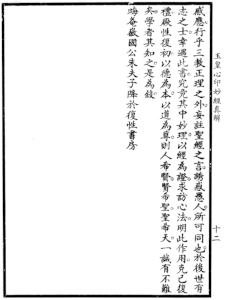 玉皇心印妙經真解
十二
感應行乎三教正理之外妄註聖經之言誘惑愚人所可同也於後世有
志之士幸遇此書究竟其中妙理以經為證求訪心法明此作用克己復
禮厥性復初以德為本以道為尊則人希賢賢希聖聖希天一誠有不難
矣學者其知之是為敘
晦菴徽國公朱夫子降於復性書房